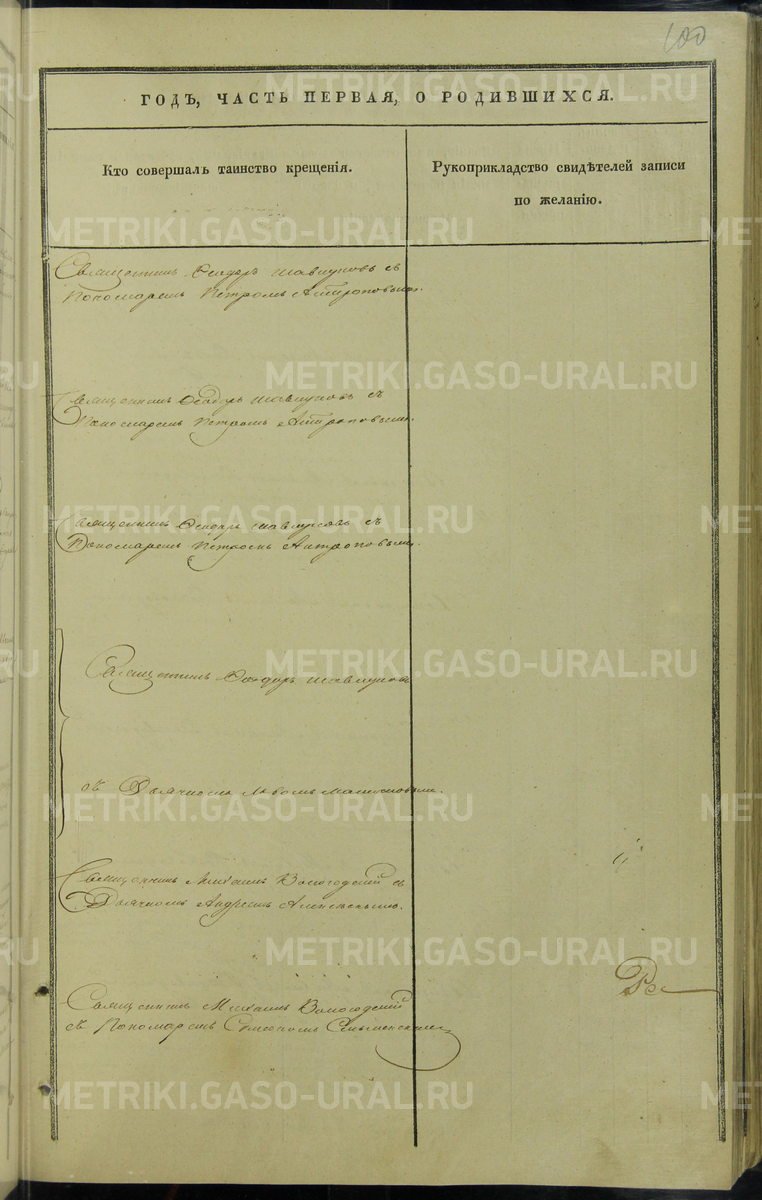 100
ГОДЪ, ЧАСТЬ ПЕРВАЯ, О РОДИВШИХСЯ.
Кто совершалъ таинство крещенія.
Рукоприкладство свидѣтелей записи
по желанію.
Священникъ Ѳеодоръ Шавкуновъ съ
Пономаремъ Петромъ Антроповымъ.
Священникъ Ѳеодоръ Шавкуновъ съ
Пономаремъ Петромъ Антроповымъ.
Священникъ Ѳеодоръ Шавкуновъ съ
Пономаремъ Петромъ Антроповымъ.
Священникъ Ѳеодоръ Шавкуновъ
съ Дьячкомъ
Священникъ Михаилъ Вологодскій съ
Дьячкомъ Андреемъ
Священникъ Михаилъ Вологодскій
съ Пономаремъ
METRIKI.GASO-URAL.RU